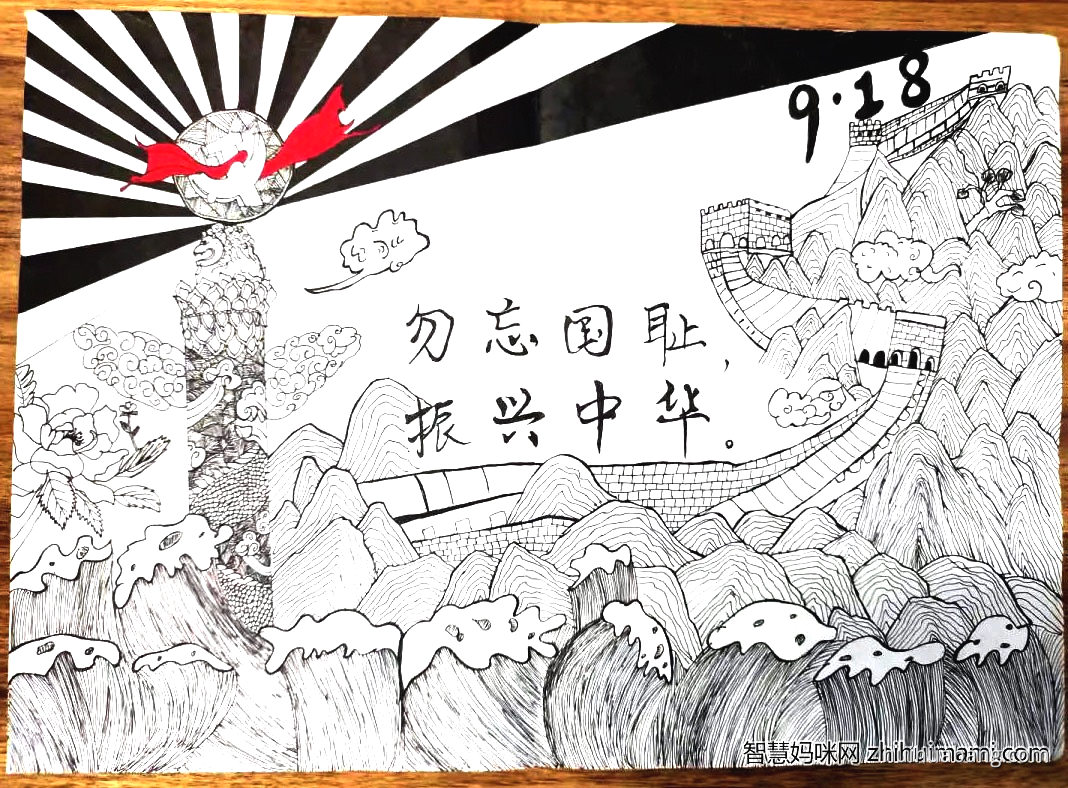 9·18
勿忘国耻，
振兴中华。
智慧妈咪网 zhihuimami.com